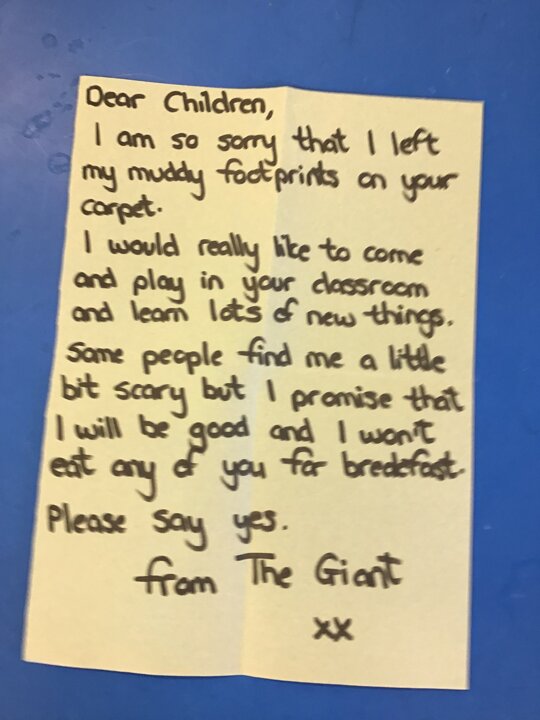 Dear Children,
I am so sorry that I left
my muddy footprints on your
carpet.
I would really like to come
and play in your classroom
and learn lots of new things.
Some people find me a little
bit scary but I promise that
I will be good and I won't
eat any of you for bredefast.
Please say yes.
from The Giant
xx